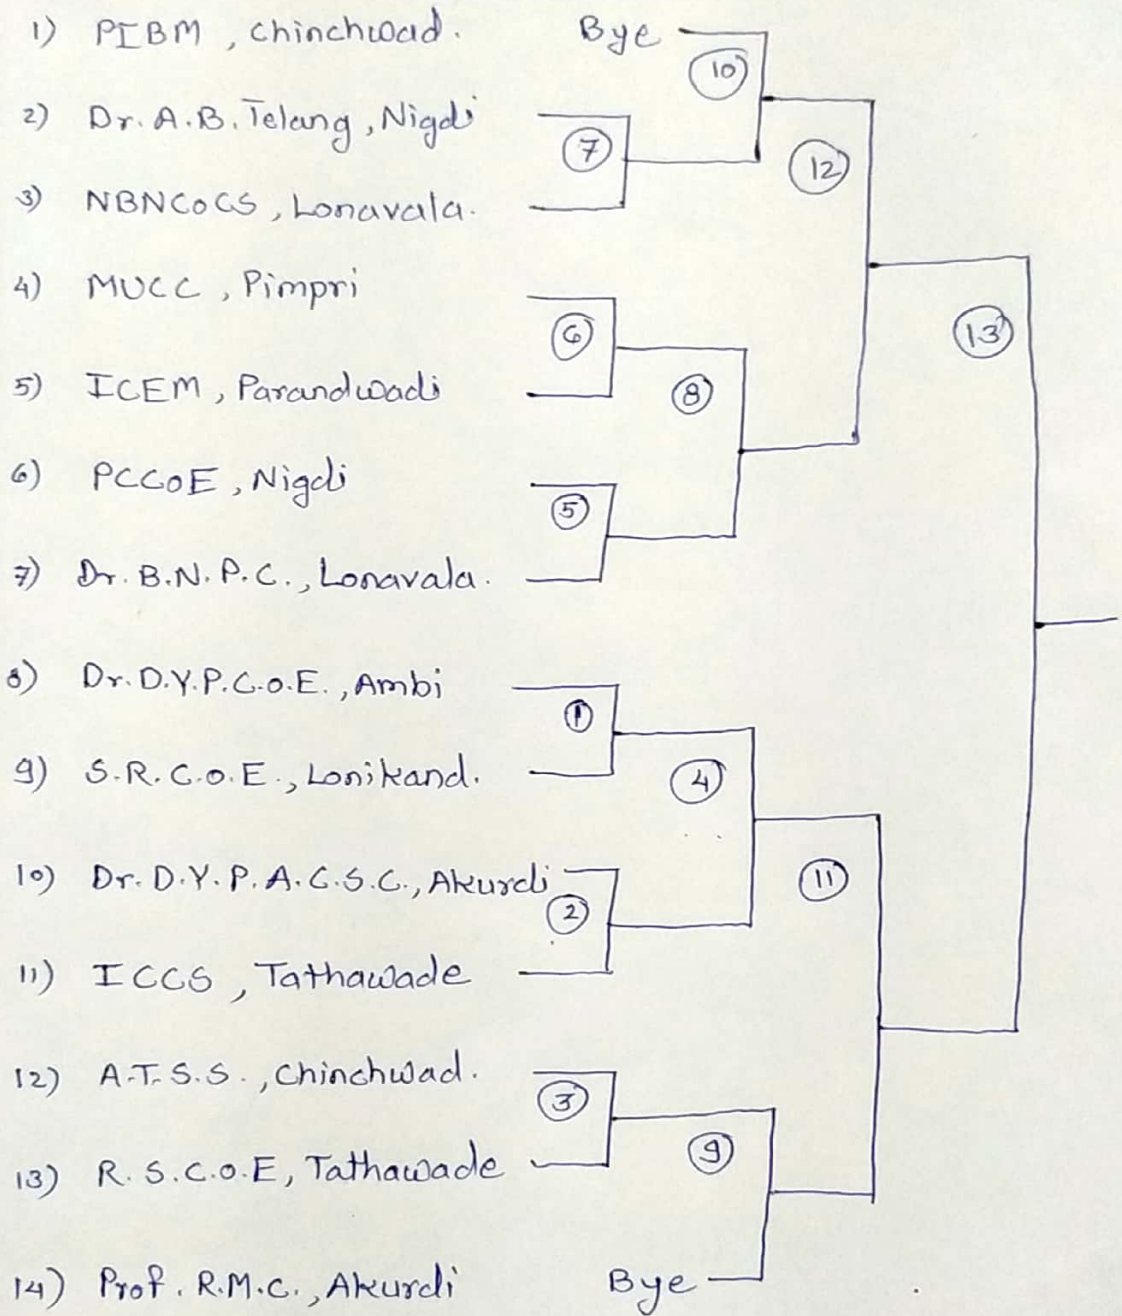 1) PIBM, Chinchwad. Bye
10
2) Dr. A.B. Telang, Nigdi
7
12
3) NBNCOCS, Lonavala.
4) MUCC, Pimpri
6
13
5) ICEM, Parandwadi
8
6) PCCOE, Nigdi
5
7) Dr. B.N.P.C., Lonavala.
8) Dr. D.Y.P.C.O.E., Ambi
1
9) S.R.C.O.E., Lonikand.
4
10) Dr. D.Y.P.A.C.S.C., Akurdi
11
2
11) ICCS, Tathawade
12) A.T.S.S., Chinchwad.
3
9
13) R.S.C.O.E, Tathawade
14) Prof. R.M.C., Akurdi Bye